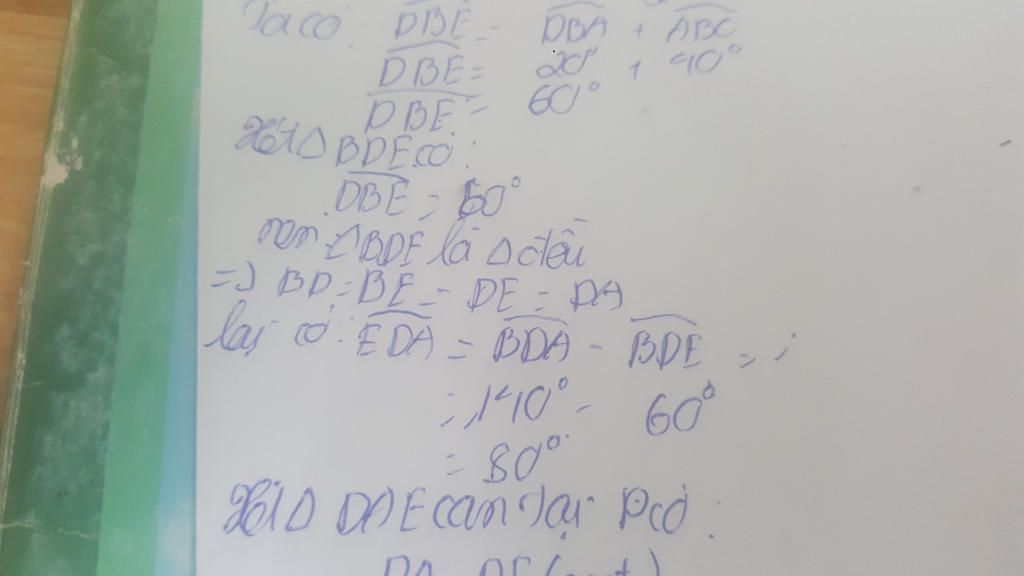 Ta có: DBE = DBA + ABC
DBE = 20° + 40°
DBE = 60°
Xét Δ BDE có:
DBE = 60°
nên Δ BDE là Δ đều
=> BD = BE = DE = DA
lại có: EDA = BDA - BDE =
= 140° - 60°
= 80°
Xét Δ DAE cân tại D có:
DA = DE (